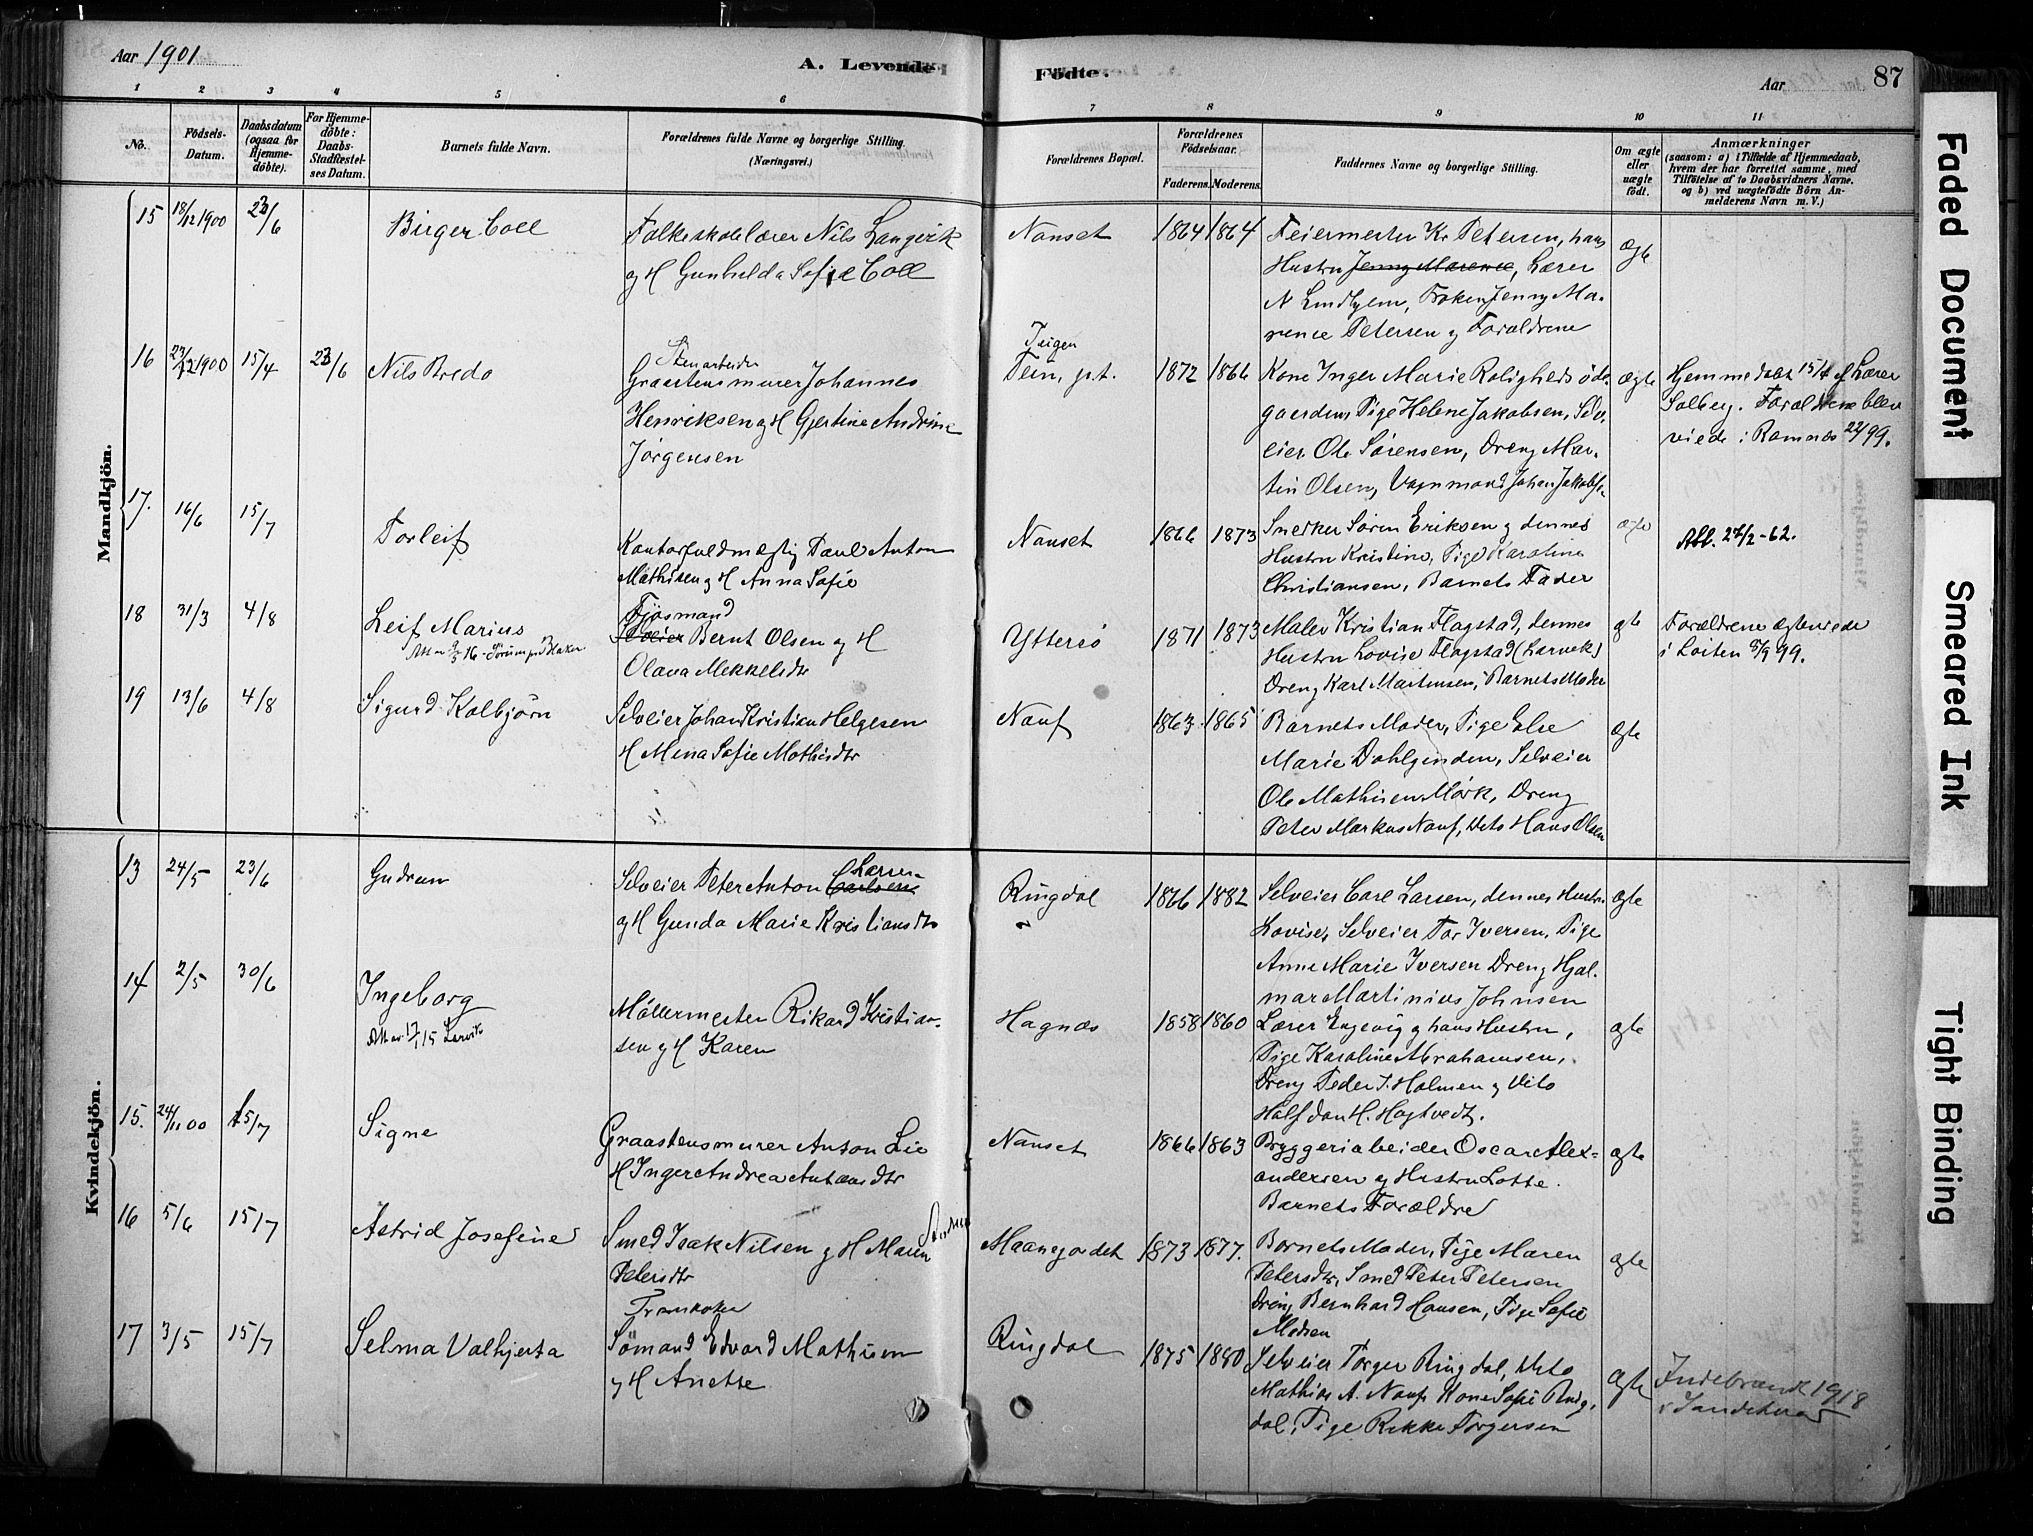 Aar 1901
A. Levende Fødte.
Aar
87
1 2 3 4 5 6 7 8 9 10 11
No.
Fødsels-Datum.
Daabsdatum (ogsaa for Hjemmedøbte).
For Hjemmedøbte: Daabs-Stadfæstelses Datum.
Barnets fulde Navn.
Forældrenes fulde Navne og borgerlige Stilling. (Næringsvei.)
Forældrenes Bopæl.
Forældrenes Fødselsaar.
Faderens. Moderens.
Faddernes Navne og borgerlige Stilling.
Om ægte eller uægte født.
Anmærkninger
(saasom: a) i Tilfælde af Hjemmedaab, hvem der har forrettet samme, med Tilføielse af to Daabsvidners Navne. og b) ved uægtefødte Børn Anmelderens Navn m. V.)
Mandkjön.
15 18/12 1900 23/6 Birger Coll
Folkeskolelærer Nils Langvik
og H Gunhilda Sofie Coll
Nanset 1864 1864
Feiermester Kr Petersen, hans
Hustru Jenny Marence, Lærer
N Lindhjem, Frøken Jenny Ma-
rence Petersen og Forældrene
ægte
16 23/12 1900 15/4 23/6 Nils Bredo
Stenarbeider
Graastensmurer Johannes
Henriksen og H Gjertine Andrine
Jørgensen
Tein, p.t. 1872 1866
Kone Inger Marie Rolighedsøde-
gaarden Pige Helene Jakobsen, Selv-
eier Ole Sørensen, Dreng Mar-
tin Olsen, Vognmand Johan Jakobsen
ægte
Hjemmedøbt 15/4 af Lærer
Solberg. Forældrene blev
viede i Ramnes 22/ 99.
17. 16/6 15/7 Torleif
Kontorfuldmægtig Paul Anton
Mathisen og H Anna Sofie
Nanset 1866 1873
Snekker Søren Eriksen og dennes
Hustru Kristine, Pige Karoline
Christiansen, Barnets Fader
ægte
Att. 27/2-62.
18 31/3 4/8 Leif Marius
Fjøsmand
Selveier Bernt Olsen og H
Olava Mekkelsdtr
Ytterső 1871 1873
Maler Kristian Flagstad, dennes
Hustru Lovise Flagstad (Larvik)
Dreng Karl Martinsen, Barnets Moder
ægte
Forældrene ægteviede
i Løiten 5/9 99.
19 13/6 4/8 Sigurd Kolbjørn
Selveier Johan Kristian Helgesen
H Mina Sofie Mathisdtr
Nauf 1863 1865
Barnets Moder, Pige Else
Marie Dahlgenden, Selveier
Ole Mathisen Mørk, Dreng
Peter Markus Nauf, Dito Hans Olsen
ægte
Kvindekjön.
13 24/5 23/6 Gudrun
Selveier Peter Anton Carlsen Larsen
og H Gunda Marie Kristiansdtr
Ringdal 1866 1882
Selveier Carl Larsen, dennes Hustru
Lovise, Selveier Tor Iversen, Pige
Anne Marie Iversen Dreng Hjal-
mar Martinius Johnsen
ægte
14 2/5 30/6 Ingeborg
Att av 17/1 15 Larvik
Møllermester Rikard Kristian-
sen og H Karen
Hagnæs 1858 1860
Lærer Engevig og hans Hustru,
Pige Karoline Abrahamsen,
Dreng Peder J. Holmen og Dito
Halfdan H. Hogtvedt.
ægte
15. 24/11 00 15/7 Signe
Graastensmurer Anton Lie
H Inger Andrea Antonsdtr
Nanset 1866 1863
Bryggeriarbeider Oscar Alex-
andersen og Hustru Lotte.
Barnets Forældre
ægte
16 5/6 15/7 Astrid Josefine
Smed Isak Nilsen og H Maren
Petersdtr
Maanejordet 1873 1877.
Barnets Moder, Pige Maren
Petersdtr, Smed Peter Petersen
Dreng Bernhard Hansen, Pige Sofie
Madsen
ægte
17 3/5 15/7 Selma Valhjerta
Trankoker
Sømand Edvard Mathisen
og H Anette
Ringdal 1875 1880
Selveier Torger Ringdal, Dito
Mathias A. Nauf, Kone Sofie Ring-
dal, Pige Rikke Torgersen
ægte
1918
Faded Document
Smeared Ink
Tight Binding